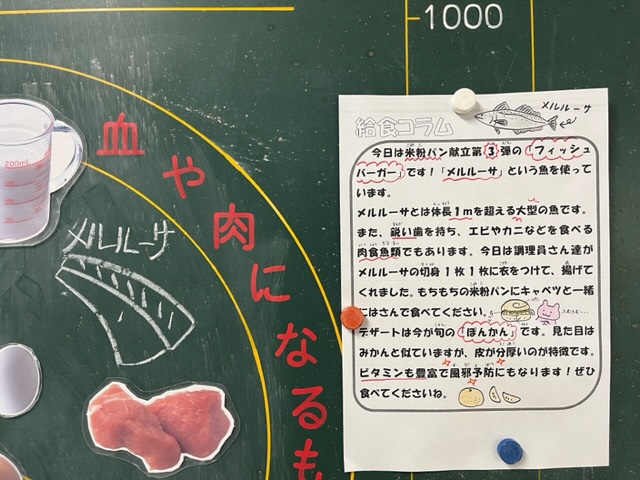 1000
200mL
血や肉になるも
メルルーサ
メルルーサ
給食コラム
今日は米粉パン献立第3弾の「フィッシュ
バーガー」です！「メルルーサ」という魚を使って
います。
メルルーサとは体長1mを超える大型の魚です。
また、鋭い歯を持ち、エビやカニなどを食べる
肉食魚類でもあります。今日は調理員さん達が
メルルーサの切身1枚1枚に衣をつけて、揚げて
くれました。もちもちの米粉パンにキャベツと一緒
にはさんで食べてください。
デザートは今が旬の「ぽんかん」です。見た目は
みかんと似ていますが、皮が分厚いのが特徴です。
ビタミンも豊富で風邪予防にもなります！ぜひ
食べてくださいね。